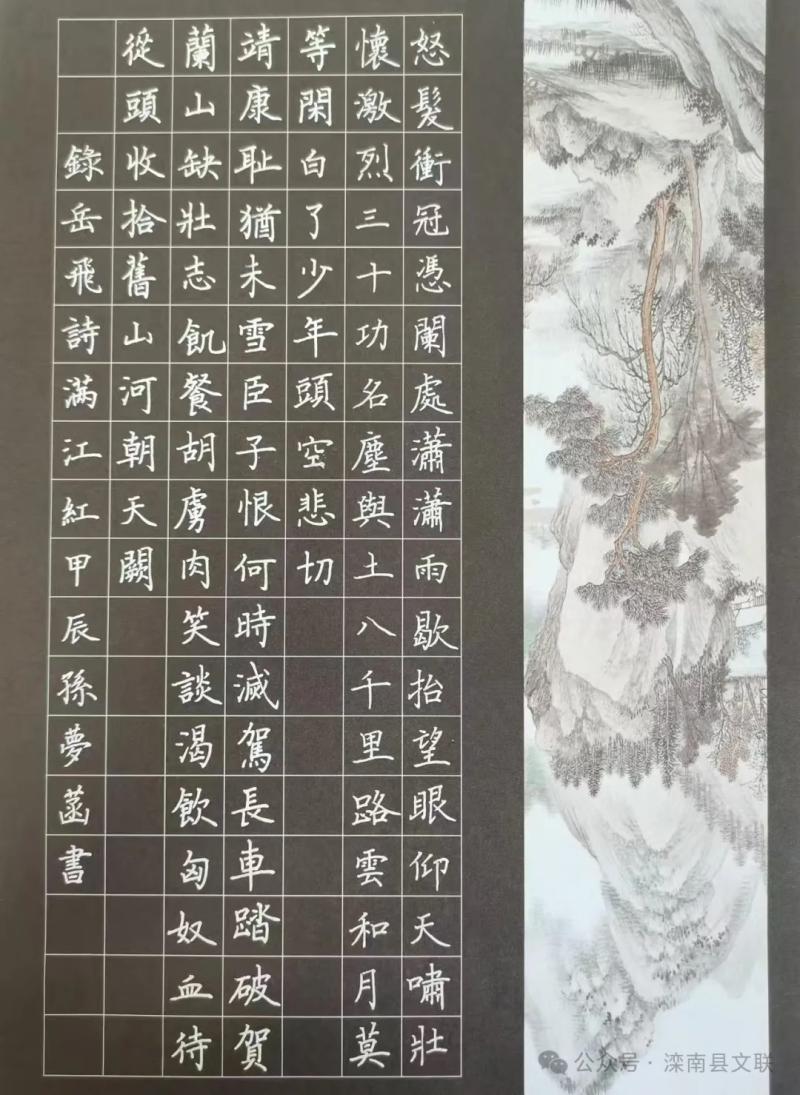 怒髮衝冠憑闌處瀟瀟雨歇抬望眼仰天嘯壯
懷激烈三十功名塵與土八千里路雲和月莫
等閑白了少年頭空悲切
靖康耻猶未雪臣子恨何時滅駕長車踏破賀
蘭山缺壯志飢餐胡虜肉笑談渴飲匈奴血待
從頭收拾舊山河朝天闕
錄岳飛詩滿江紅甲辰孫夢菡書
公众号·滦南县文联